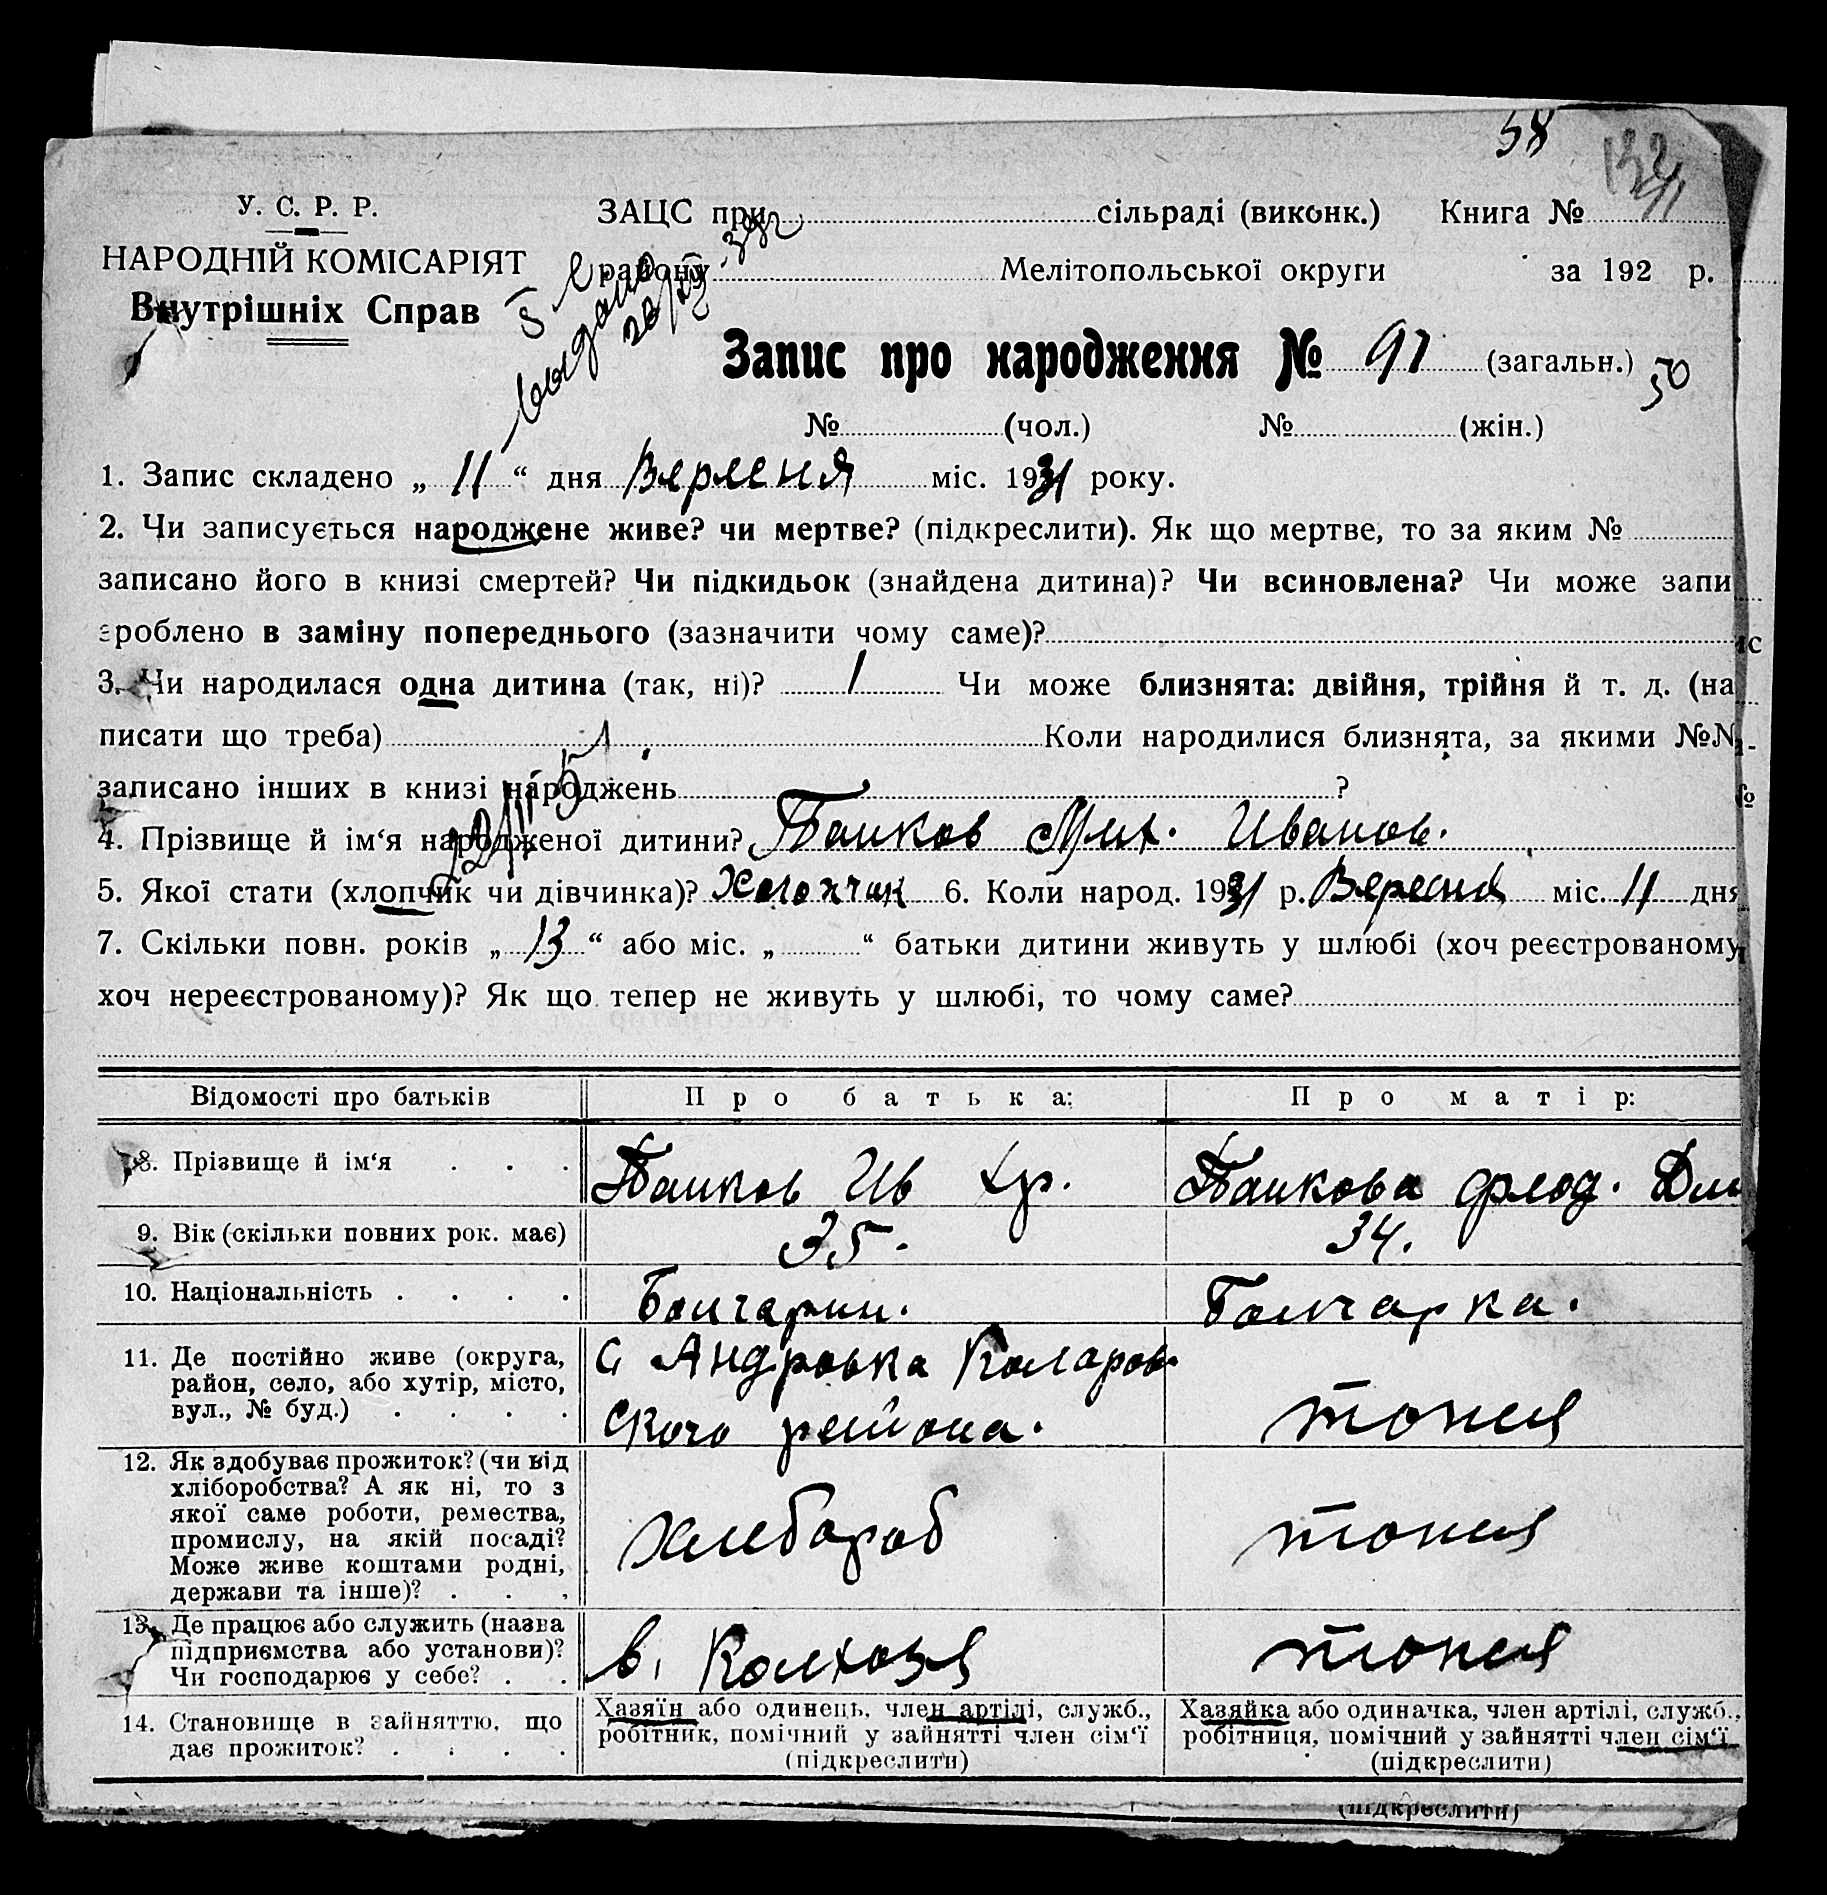 58
У. С. Р. Р.
НАРОДНІЙ КОМІСАРІЯТ
Внутрішніх Справ
ЗАЦС при сільраді (виконк.) Книга №
району Мелітопольської округи за 192 р.
Запис про народження № 91 (загальн.) 50
№ (чол.) № (жін.)
1. Запис складено „ 11 “ дня міс. 1931 року.
2. Чи записується народжене живе? чи мертве? (підкреслити). Як що мертве, то за яким №
записано його в книзі смертей? Чи підкидьок (знайдена дитина)? Чи всиновлена? Чи може запи
зроблено в заміну попереднього (зазначити чому саме)?
3. Чи народилася одна дитина (так, ні)? 1 Чи може близнята: двійня, трійня й т. д. (на
писати що треба) Коли народилися близнята, за якими №№
записано інших в книзі народжень ?
4. Прізвище й ім‘я народженої дитини? Мих. Иванов.
5. Якої стати (хлопчик чи дівчинка)? Хлопчик 6. Коли народ. 1931 р. Вересня міс. 11 дня
7. Скільки повн. років „ 13 “ або міс. „ “ батьки дитини живуть у шлюбі (хоч реєстрованому,
хоч нереєстрованому)? Як що тепер не живуть у шлюбі, то чому саме?
Відомості про батьків Про батька: Про матір:
8. Прізвище й ім‘я Ив Хр.
9. Вік (скільки повних рок. має) 35. 34.
10. Національність Болгарин. Болгарка.
11. Де постійно живе (округа, район, село, або хутір, місто, вул., № буд.)
с Андровка Коларов
ского района.
12. Як здобуває прожиток? (чи від
хліборобства? А як ні, то з
якої саме роботи, ремества,
промислу, на якій посаді?
Може живе коштами родні,
держави та інше)?
хлебороб
13. Де працює або служить (назва
підприємства або установи)?
Чи господарює у себе?
в. Колхозя
14. Становище в зайняттю, що
дає прожиток?
Хазяїн або одинець, член артілі, служб.,
робітник, помічний у зайнятті член сім‘ї
(підкреслити)
Хазяйка або одиначка, член артілі, служб.,
робітниця, помічний у зайнятті член сім‘ї
(підкреслити)
(підкреслити)